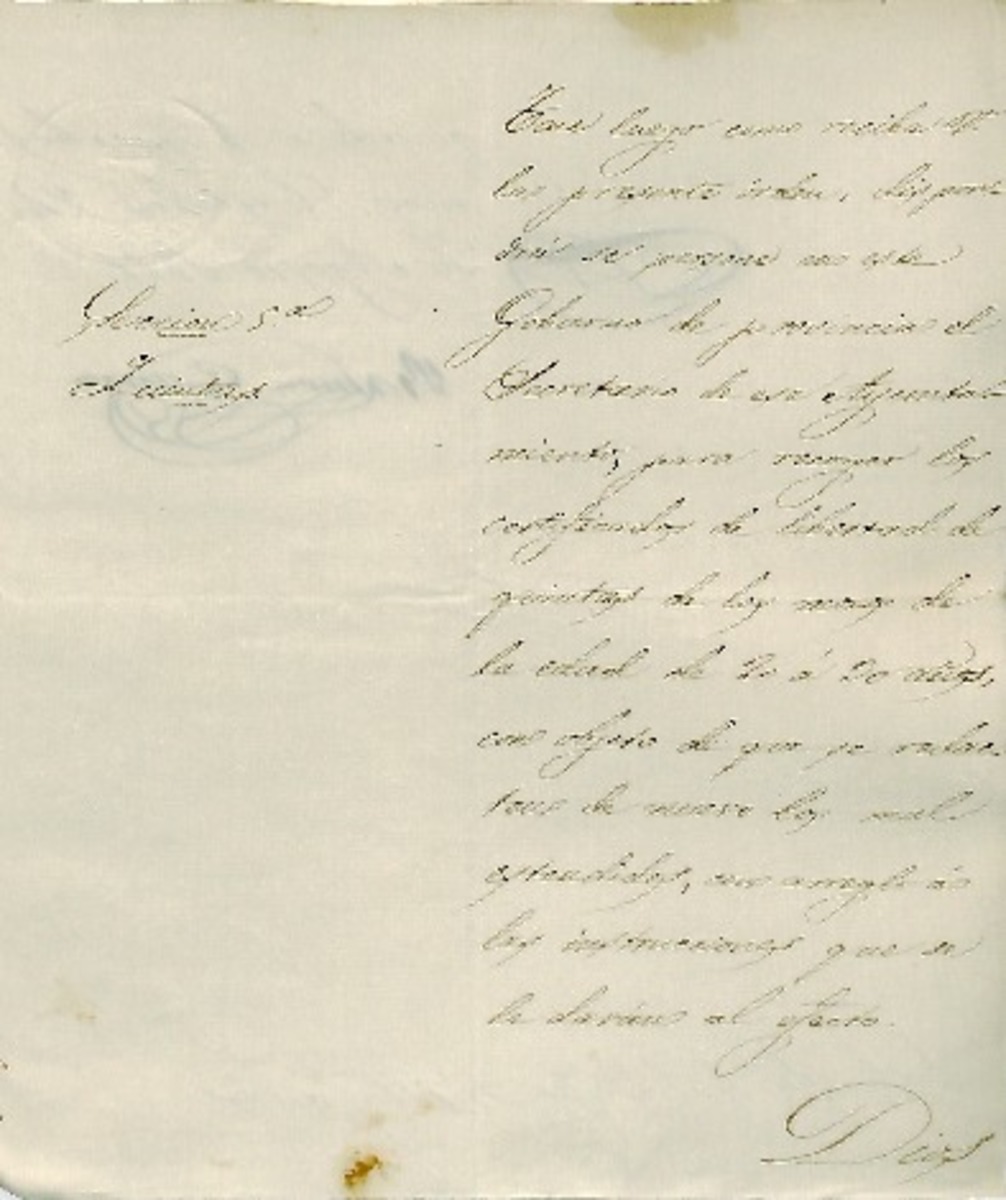 Sección 5.ª
Quintas
Tan luego como reciba V.
la presente orden, dispon-
drá se persone en este
Gobierno de provincia el
Secretario de ese Ayunta-
miento, para recoger los
certificados de libertad de
quintas de los mozos de
la edad de 20 á 30 años,
con objeto de que se redac-
ten de nuevo los mal
estendidos, con arreglo á
las instrucciones que se
le darán al efecto.
Dios